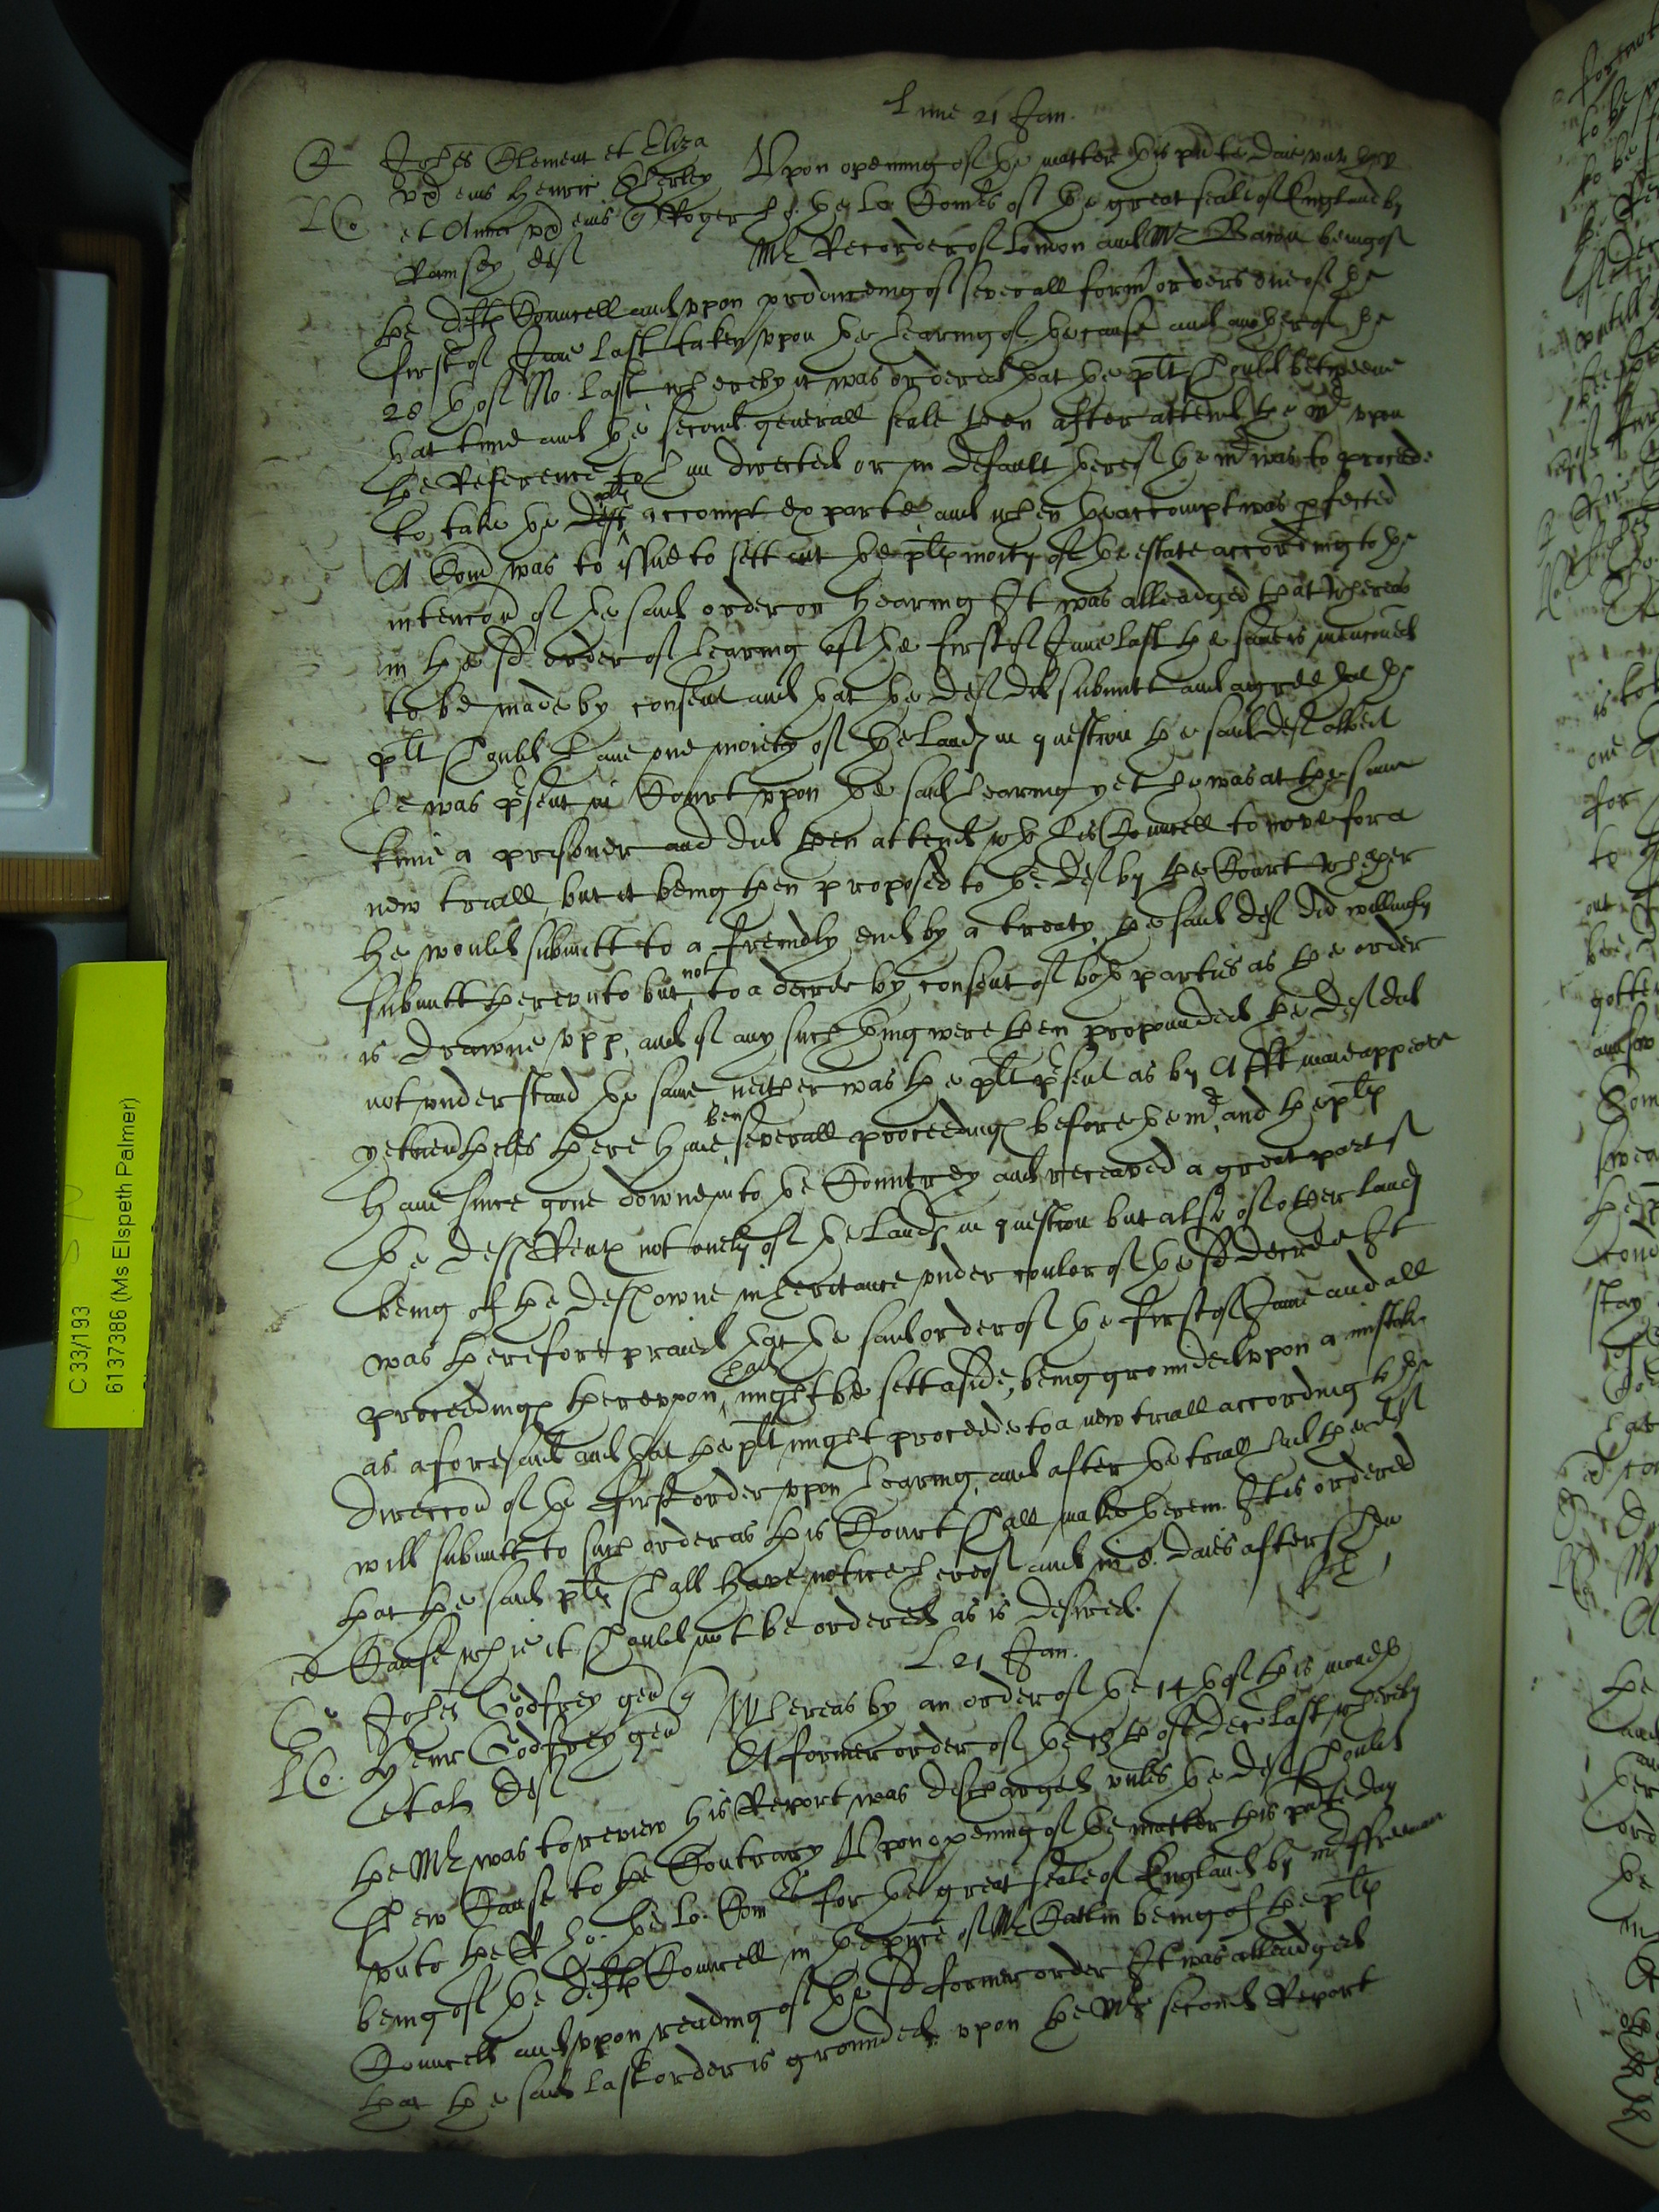 Lune 21 Jan.
C Johes Clement et Eliza
ux eius Henric Sherley Upon opening of the matter this pnte daie unto the
LCo et Anna ux eius q Roger Ho: the Lo: Comrs of the great seale of England by
Ramsey def Mr Recorder of London and Mr Baron being of
the defts Councell and upon produceing of severall form orders one of the
first of June last taken upon the hearing of the cause and another of the
28th of No. last whereby it was ordered that the plt should betweene
that time and the second generall seale then after attend the mr upon
the Reference to him directed or in default thereof the mr was to proceede
to take the defts plts accompt ex parte, and when the accompt was perfected
A Comn was to issue to sett out the plts moity of the estate according to the
intencon of the said order on hearing It was alleadged that whereas
in the sd order of hearing of the first of June last the same is mencioned
to be made by consent and that the def did submitt and agree that the
plt should have one moiety of the lands in question the said def albeit
he was psent in Court upon the said hearing yet he was at the same
time a prisoner and did then attend wth his Councell to move for a
new triall, but it being then proposed to the def by the Court whether
he would submitt to a freindly end by a treaty, the said def did willingly
submitt thereunto but not to a decree by consent of both parties as the order
is drawne upp, and if any such thing were then propounded the def did
not understand the same neither was the plt psent as by Afft made appeare
yet neverthelesse there have ben severall proceedings before the mr, and the plts
have since gone downe into the Countrey and received a great part of
the defts Rents not onely of the lands in question but also of other lands
being of the defts owne inheritance under coulor of the sd decree It
was therefore praied that the said order of the first of June and all
proceedings thereupon had might be sett aside, being grounded upon a mistake
as aforesaid and that the plt might proceede to a new triall according to the
direccon of the first order upon hearing, and after the triall had the def
will submitt to such order as this Court shall make therein. It is ordered
that the said plts shall have notice hereof and in 8. daies after shew
Cause why it should not be ordered as is desired.
L. 21 Jan.
Johes Godfrey gen q Whereas by an order of the 14th of this month
LCo. Henr Godfrey gen A former order of the 13th of Decr last whereby
et al def
the Mr was to review his Report was discharged unles the def should
shew Cause to the Contrary Upon opening of the matter this pnte day
unto the Rt Ho: the Lo: Comrs for the great seale of England by mr ffreeman
being of the defts Councell in the pnce of Mr Catlin being of the plts
Councell and upon reading of the sd former order It was alleadged
that the said last order is grounded upon the Mrs second Report
C 33/193
6137386 (Ms Elspeth Palmer)